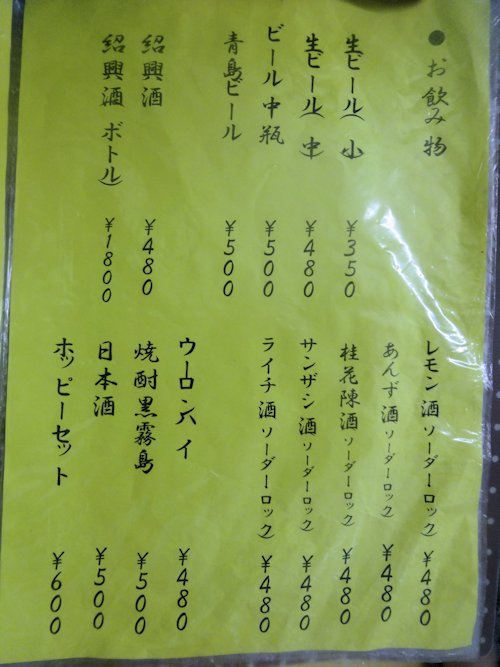 ●お飲み物
生ビール(小) ¥350
生ビール(中) ¥480
ビール中瓶 ¥500
青島ビール ¥500
紹興酒 ¥480
紹興酒(ボトル) ¥1800
レモン酒(ソーダーロック) ¥480
あんず酒(ソーダーロック) ¥480
桂花陳酒(ソーダーロック) ¥480
サンザシ酒(ソーダーロック) ¥480
ライチ酒(ソーダーロック) ¥480
ウーロンハイ ¥480
焼酎黒霧島 ¥500
日本酒 ¥500
ホッピーセット ¥600